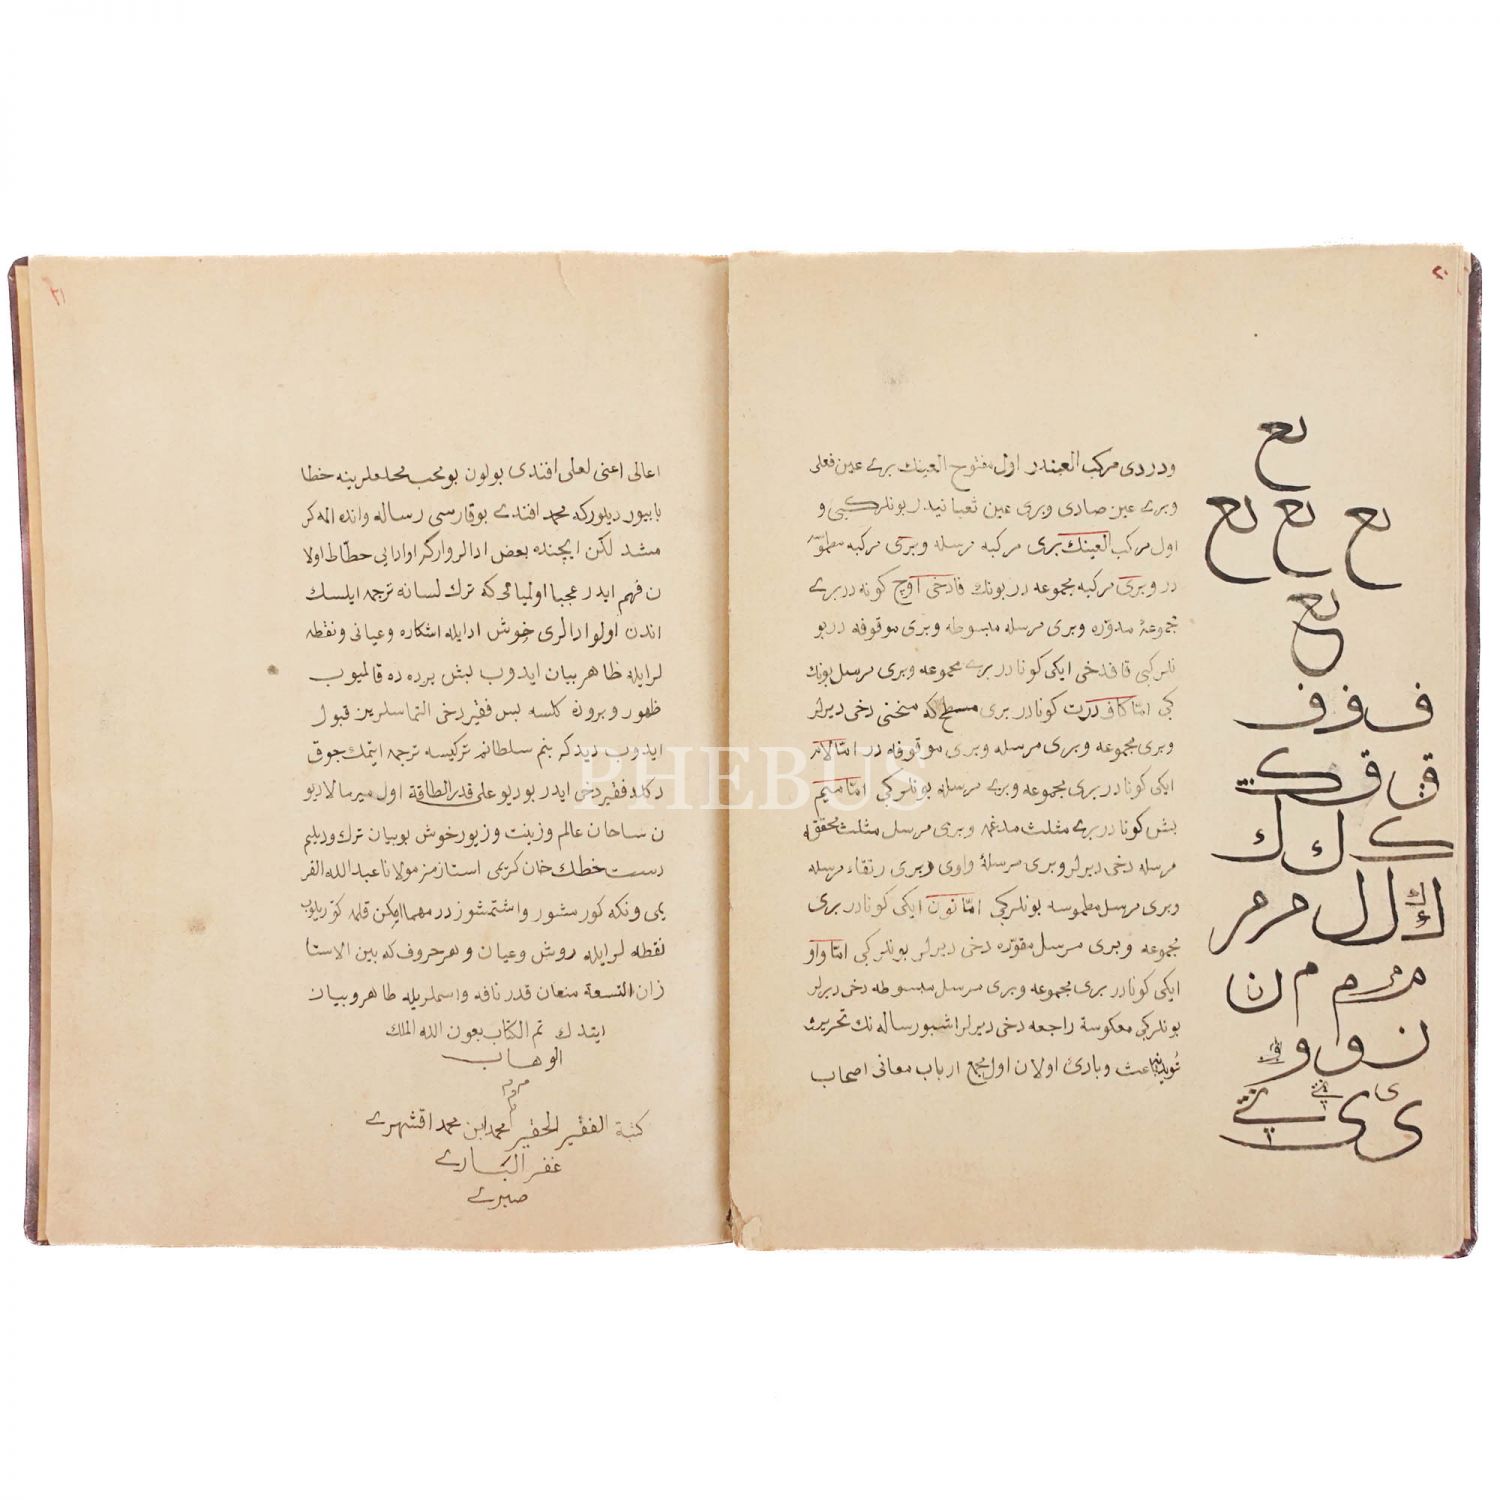 ٢٠
ودردی مركب العیندر اول مفتوح العینك بری عین فعلی
وبری عین صادی وبری عین ثعبانیدر بونلركبی و
اول مركب العینك بری مركبه مرسله وبری مركبه مطموسه
در وبری مركبه مجموعه در بونك قادخی اوچ كونه در بری
مجموعهٔ مدوّره وبری مرسله مبسوطه وبری موقوفه در بو
نلركبی قافدخی ایكی كونادر بری مجموعه وبری مرسل بونك
كبی امّا كاف درت كونادر بری مسطح كه منحنی دخی دیرلر
وبری مجموعه وبری مرسله وبری موقوفه در امّا لام
ایكی كونادر بری مجموعه وبری مرسله بونلركبی امّا میم
بش كونادر بری مثلث مدغمه وبری مرسل مثلث محققه
مرسله دخی دیرلر وبری مرسلهٔ واوی وبری رتقاء مرسله
وبری مرسل مطموسه بونلركبی امّا نون ایكی كونادر بری
مجموعه وبری مرسل مقوّره دخی دیرلر بونلركبی امّا واو
ایكی كونادر بری مجموعه وبری مرسل مبسوطه دخی دیرلر
بونلركبی معكوسهٔ راجعه دخی دیرلر اشبو رساله نك تحریرینه
باعث وبادئ اولان اول مجمع ارباب معانی اصحاب
ىع
ىع ىع ىع
ىع
ف ف ف
ق ق ك
ك ك ك
ك ل ل م م
م م م ن
ن و و
ی ی ی
٢١
اعالی اعنی لعلی افندی بولون بومحب مخلصلرینه خطا
با بیور دیلوركه محمد افندی بوفارسی رساله
لكن ایچنده بعض ادالر وارکه اوادایی خطّاط اولا
ن فهم ایدر عجبا اولمیامی كه ترك لسانه ترجمه ایلسك
اندن اولو ادالری خوش ادایله اشكاره وعیانی ونقطه
لرایله ظاهر بیان ایدوب بش پرده ده قالمیوب
ظهور وبروزه كلسه بس فقیر دخی التماسلرین قبول
ایدوب دیدكه بنم سلطانم تركیسه ترجمه ایتمك جوق
دكلد فقیر دخی ایدر بودیو علی قدر الطاقة اول میر مالادیو
ن ساحان عالم وزینت وزیور خوش بوبیان ترك ودیلیم
دست خطك خان كریمی استازمز مولانا عبد الله القر
یمی ونكه كورسشور واشتمشوز در مهما امكن قلمه كوریلوب
نقطه لرایله روش وعیان وهر حروف كه بین الاستا
زان التسعة منعان قدر نافه واسملریله ظاهر وبیان
ایتدك تم الكتاب بعون الله الملك
الوهاب
مرحوم
كتبة الفقیر الحقیر محمد ابن محمد اقشهری
غفر الباری
صبری
PHEBUS